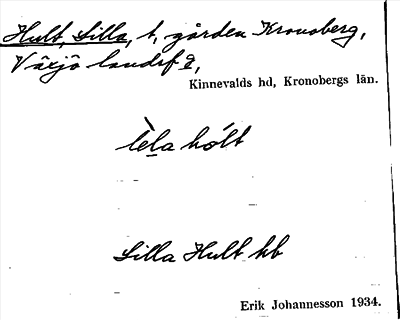 Hult, Lilla, t, gården Kronoberg,
Växjö landsf g,
Kinnevalds hd, Kronobergs län.
lèla hólt
Lilla Hult kb
Erik Johannesson 1934.